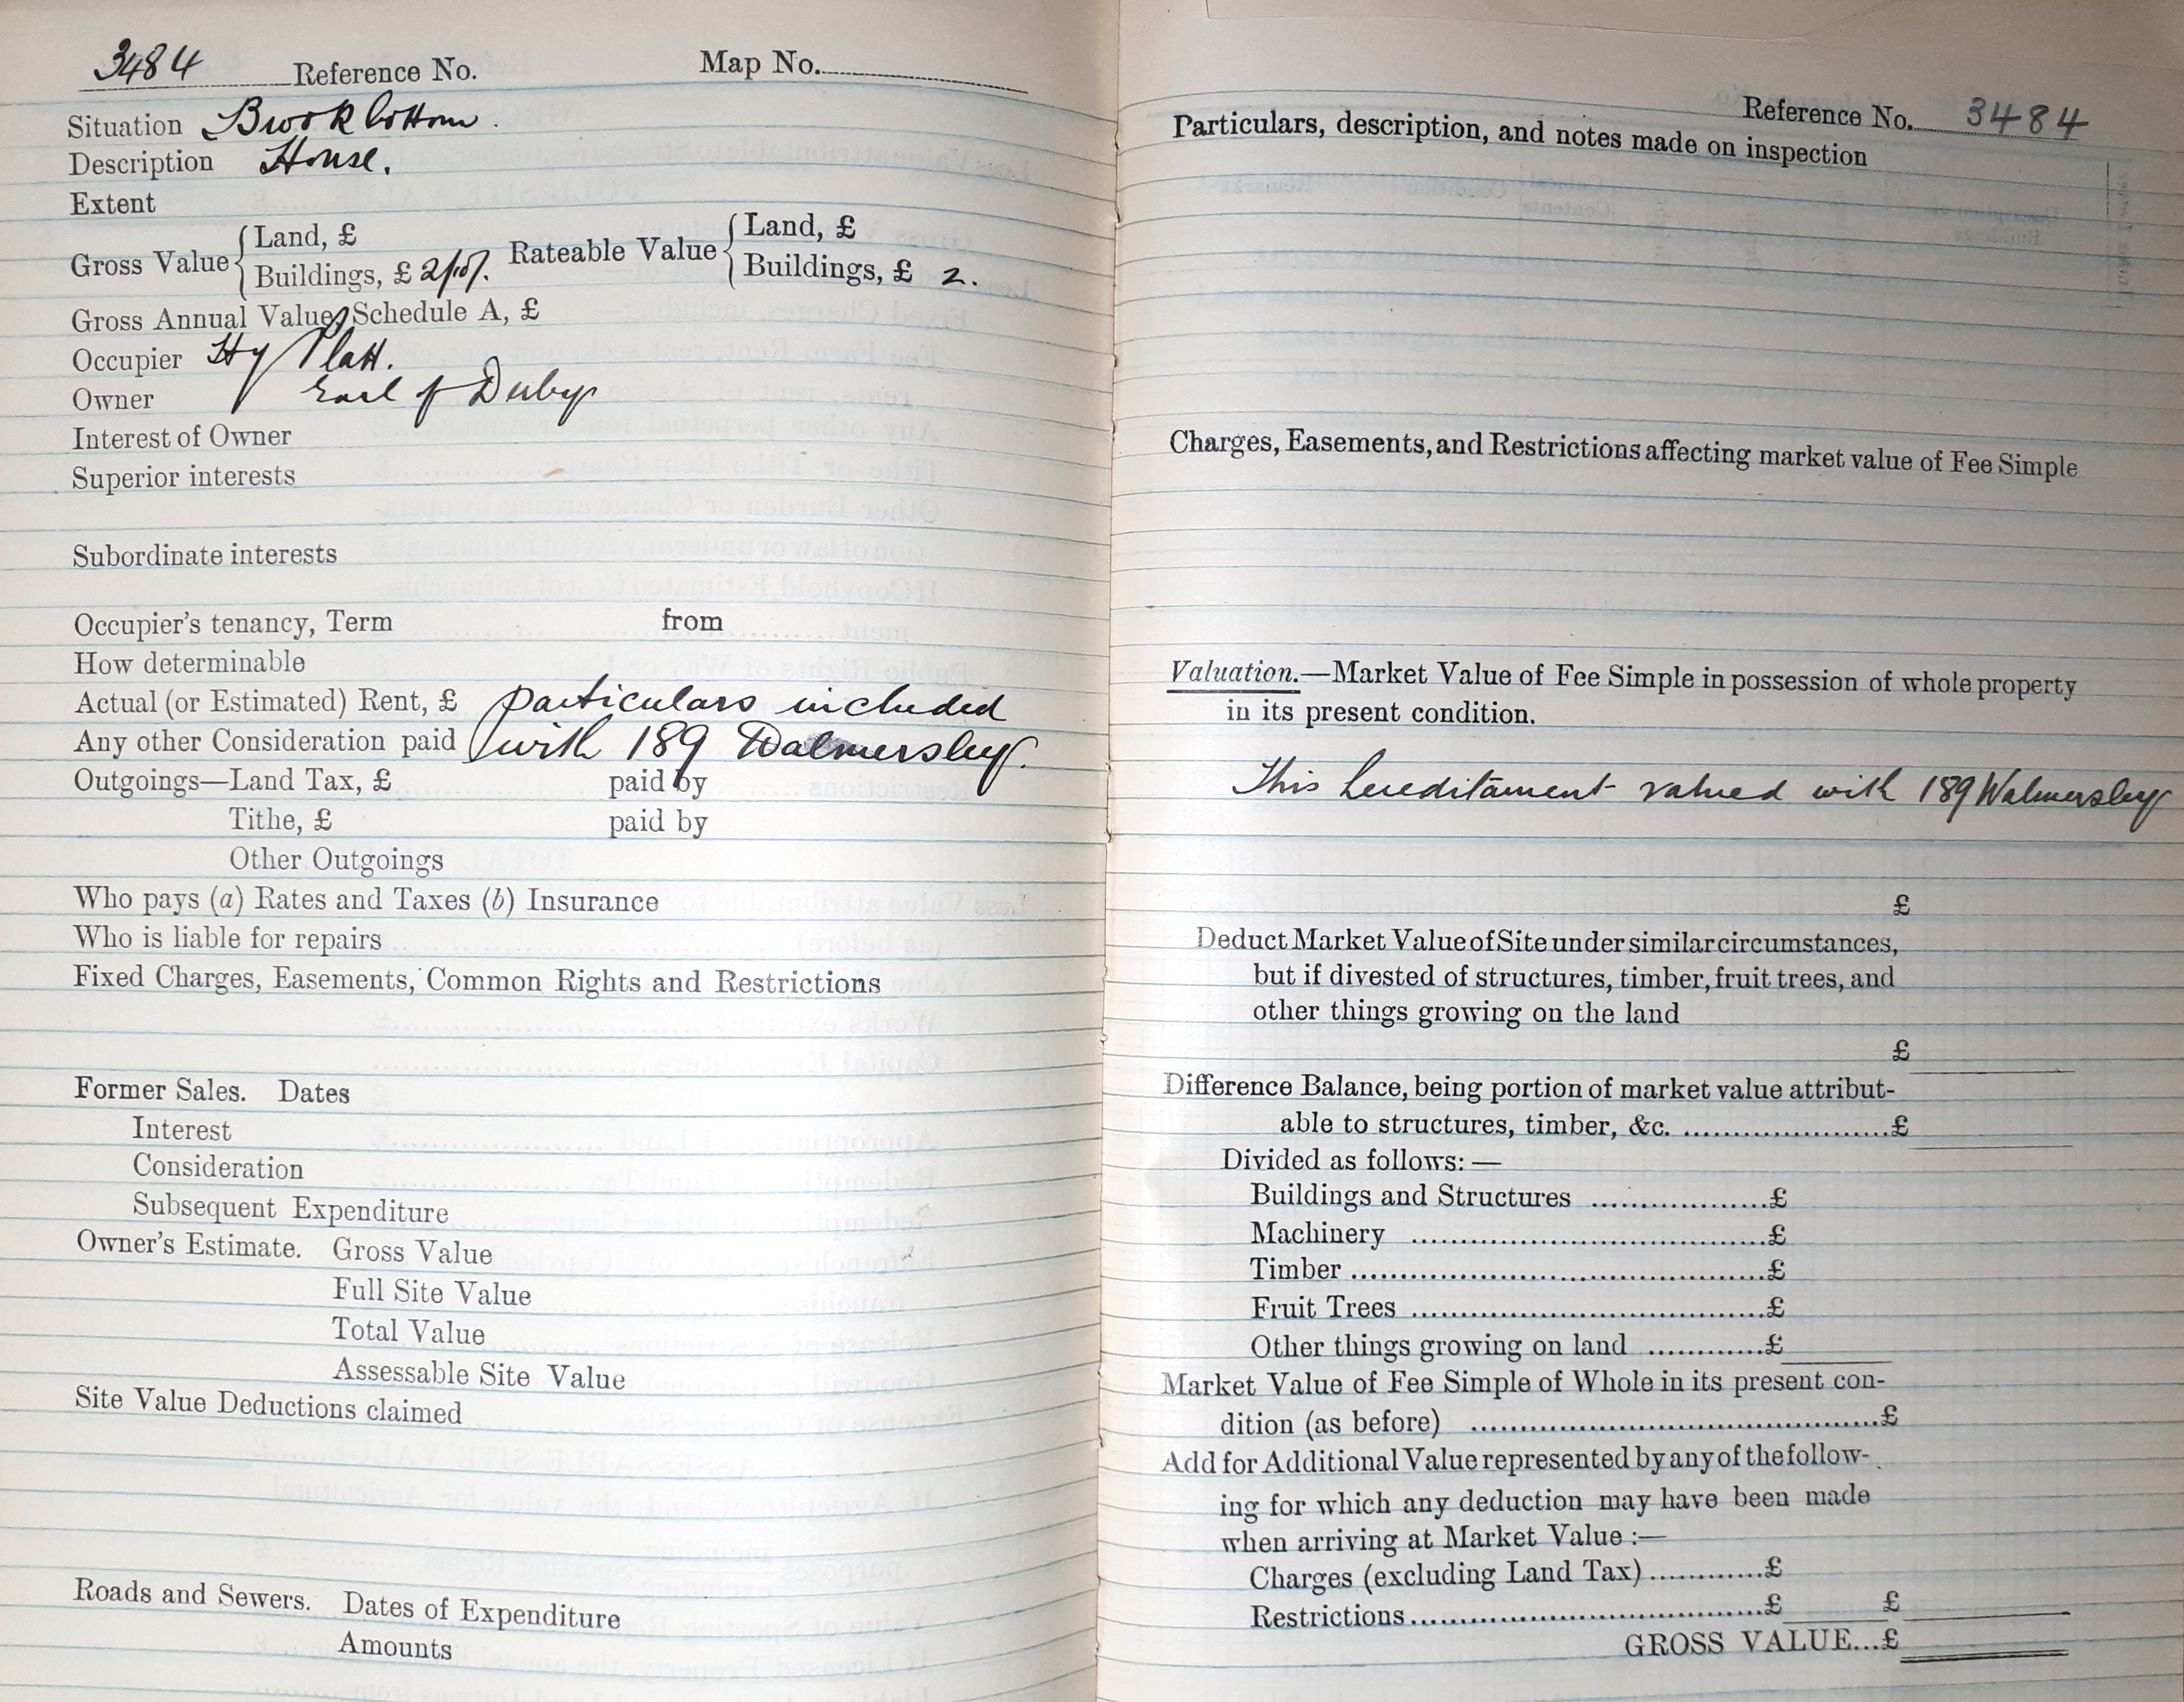 3484 Reference No. Map No.
Situation Brookbottom.
Description House.
Extent
Gross Value { Land, £ Rateable Value { Land, £
Buildings, £ 2/10/. Buildings, £ 2.
Gross Annual Value, Schedule A, £
Occupier Hy Platt.
Owner Earl of Derby
Interest of Owner
Superior interests
Subordinate interests
Occupier's tenancy, Term from
How determinable
Actual (or Estimated) Rent, £ particulars included
Any other Consideration paid with 189 Walmersley.
Outgoings—Land Tax, £ paid by
Tithe, £ paid by
Other Outgoings
Who pays (a) Rates and Taxes (b) Insurance
Who is liable for repairs
Fixed Charges, Easements, Common Rights and Restrictions
Former Sales. Dates
Interest
Consideration
Subsequent Expenditure
Owner's Estimate. Gross Value
Full Site Value
Total Value
Assessable Site Value
Site Value Deductions claimed
Roads and Sewers. Dates of Expenditure
Amounts
Reference No. 3484
Particulars, description, and notes made on inspection
Charges, Easements, and Restrictions affecting market value of Fee Simple
Valuation.—Market Value of Fee Simple in possession of whole property
in its present condition.
This hereditament valued with 189 Walmersley
£
Deduct Market Value of Site under similar circumstances,
but if divested of structures, timber, fruit trees, and
other things growing on the land
£
Difference Balance, being portion of market value attribut-
able to structures, timber, &c. ......................£
Divided as follows:—
Buildings and Structures ..................£
Machinery ....................................£
Timber ..........................................£
Fruit Trees ....................................£
Other things growing on land ............£
Market Value of Fee Simple of Whole in its present con-
dition (as before) .........................................£
Add for Additional Value represented by any of the follow-
ing for which any deduction may have been made
when arriving at Market Value :—
Charges (excluding Land Tax)............£
Restrictions....................................£ £
GROSS VALUE...£